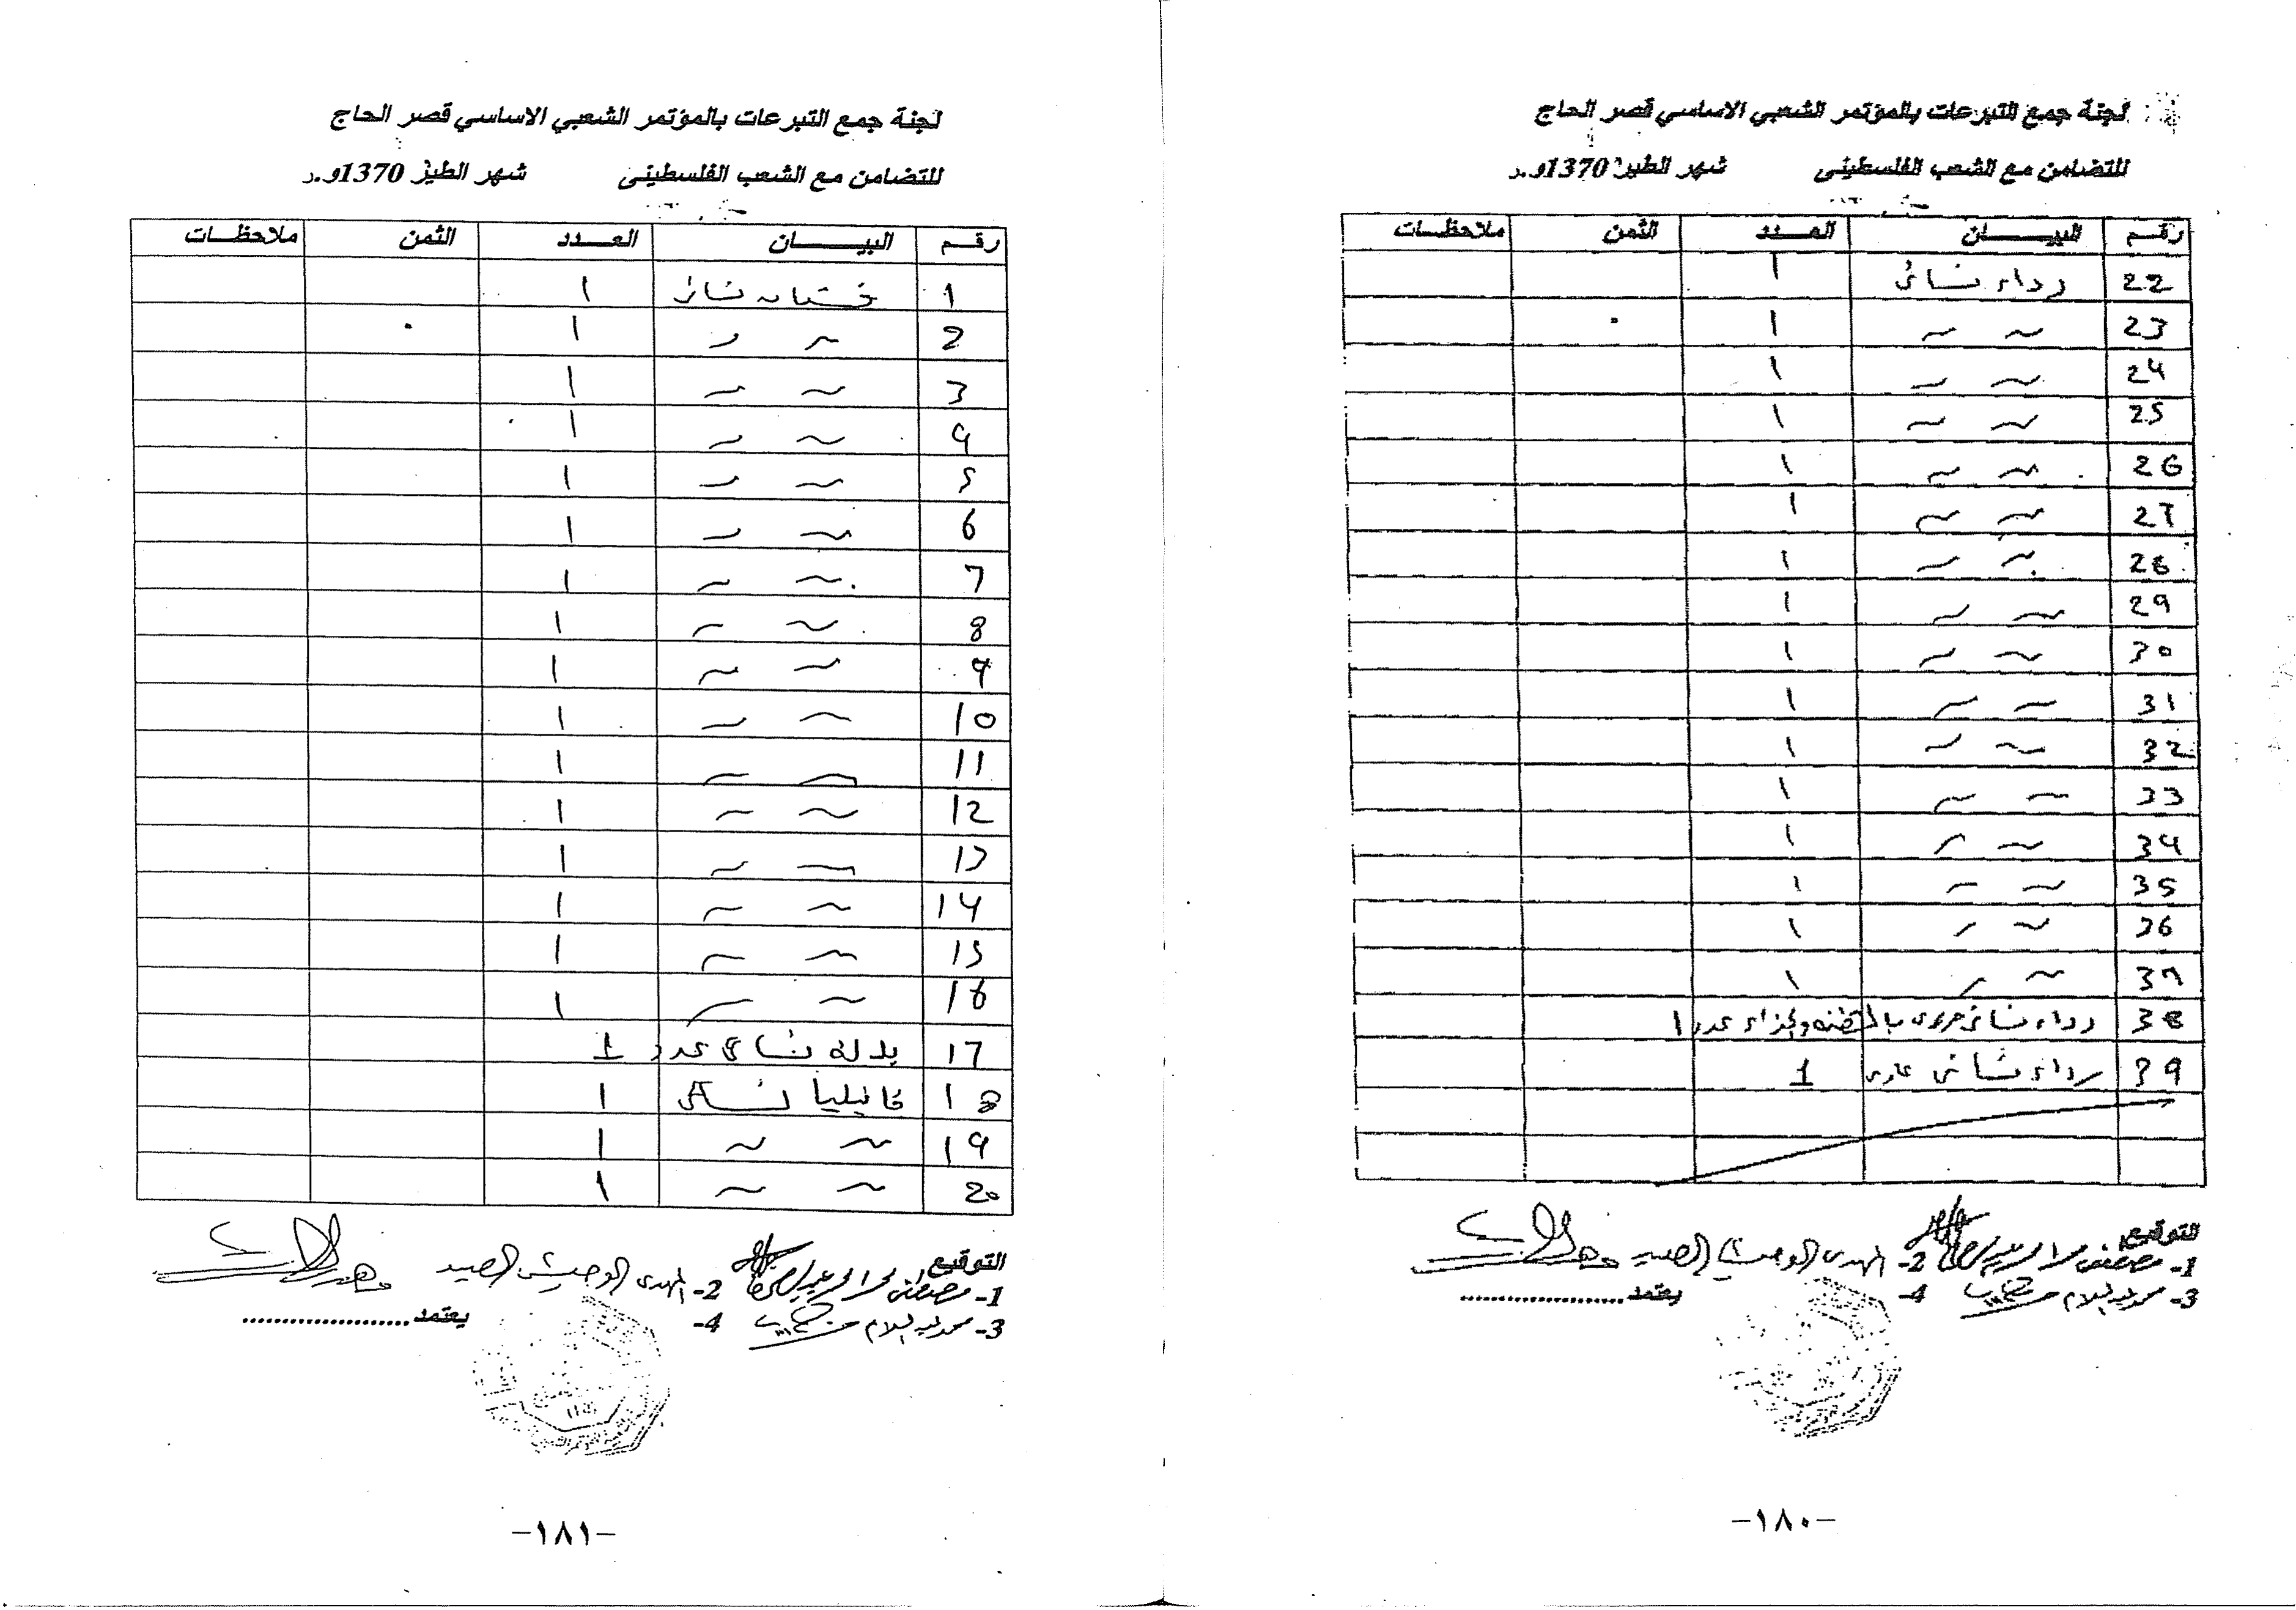 لجنة جمع التبرعات بالمؤتمر الشعبي الاساسي قصر الحاج
للتضامن مع الشعب الفلسطينى شهر الطير 1370و.ر
رقم البيــــان العــدد الثمن ملاحظــات
22 رداء نسائى ١
23 ~ ~ ١
24 ~ ~ ١
25 ~ ~ ١
26 ~ ~ ١
27 ~ ~ ١
28 ~ ~ ١
29 ~ ~ ١
30 ~ ~ ١
31 ~ ~ ١
32 ~ ~ ١
33 ~ ~ ١
34 ~ ~ ١
35 ~ ~ ١
36 ~ ~ ١
37 ~ ~ ١
38 رداء نسائى عدد ١
39 رداء نسائى عادى 1
التوقيع
1- مصطفى 2- المهدى الصيد
3- محمد عبدالسلام 4- يعتمد.....................
-١٨٠-
لجنة جمع التبرعات بالمؤتمر الشعبي الاساسي قصر الحاج
للتضامن مع الشعب الفلسطينى شهر الطير 1370و.ر
رقم البيــــان العــدد الثمن ملاحظــات
1 فستان نسائى ١
2 ~ ~ ١
3 ~ ~ ١
4 ~ ~ ١
5 ~ ~ ١
6 ~ ~ ١
7 ~ ~ ١
8 ~ ~ ١
9 ~ ~ ١
10 ~ ~ ١
11 ~ ~ ١
12 ~ ~ ١
13 ~ ~ ١
14 ~ ~ ١
15 ~ ~ ١
16 ~ ~ ١
17 بدلة نسائى عدد 1
18 فانيليا نسائى ١
19 ~ ~ ١
20 ~ ~ ١
التوقيع
1- مصطفى 2- المهدى الصيد
3- محمد عبدالسلام 4- يعتمد.....................
-١٨١-